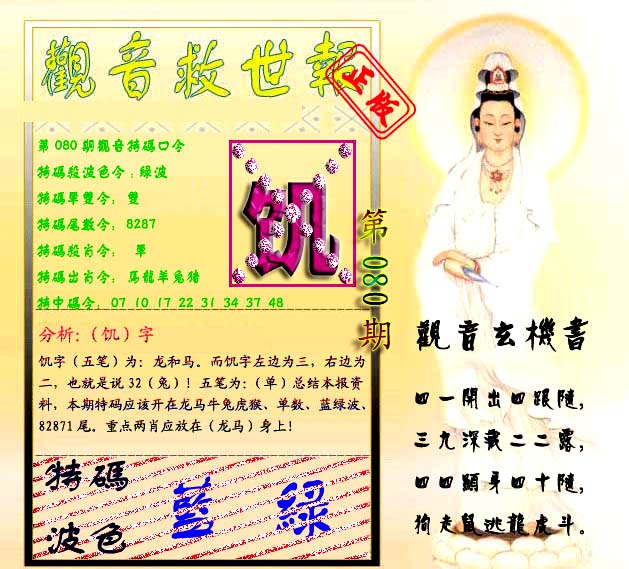 觀音救世報
正版
第080期觀音特碼口令
特碼殺波色令:綠波
特碼單雙令: 雙
特碼尾數令: 8287
特碼殺肖令: 單
特碼出肖令: 馬龍羊兔猪
特中碼令: 07 10 17 22 31 34 37 48
饥
第080期
分析:(饥)字
饥字(五笔)为:龙和马。而饥字左边为三,右边为
二,也就是说32(兔)!五笔为:(单)总结本报资
料,本期特码应该开在龙马牛兔虎猴、单数、蓝绿波、
82871尾。重点两肖应放在(龙马)身上!
特碼
波色
藍 綠
觀音玄機書
四一開出四跟隨,
三九深藏二二露,
四四顯身四十隨,
狗走鼠逃龍虎斗。